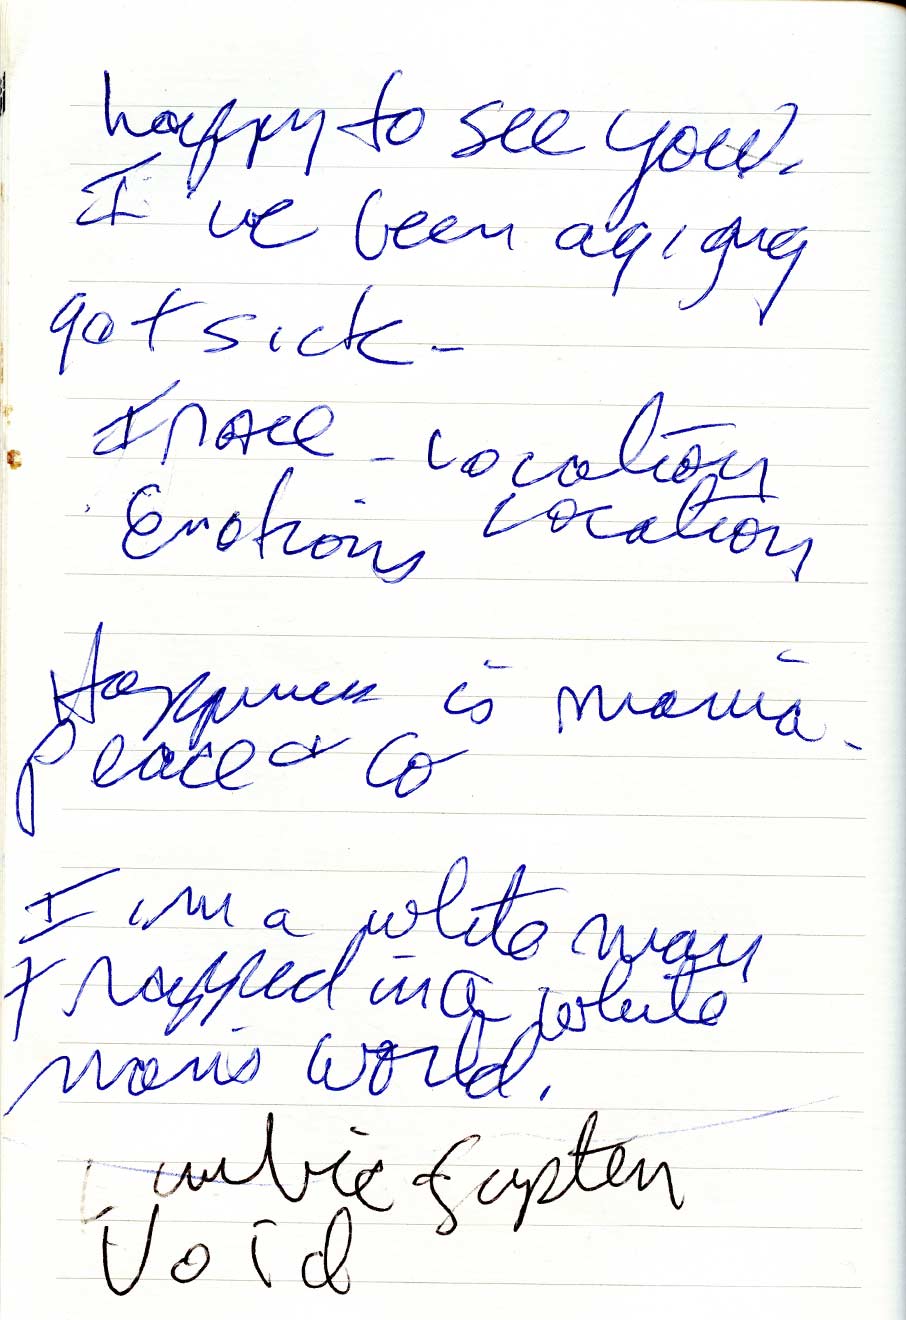 happy to see you.
I've been aging
got sick -
- Location
Emotions Location
Happiness is mania -
Peace & Co
I im a white man
trapped in a white
man's world.
Void